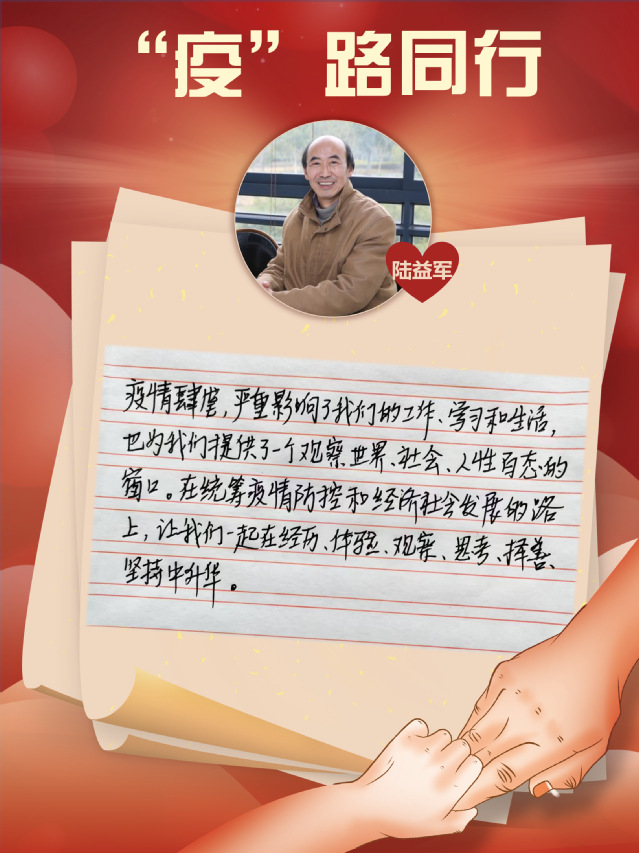 “疫”路同行
陆益军
疫情肆虐，严重影响了我们的工作、学习和生活，
也为我们提供了一个观察世界、社会、人性百态的
窗口。在统筹疫情防控和经济社会发展的路
上，让我们一起在经历、体验、观察、思考、择善、
坚持中升华。